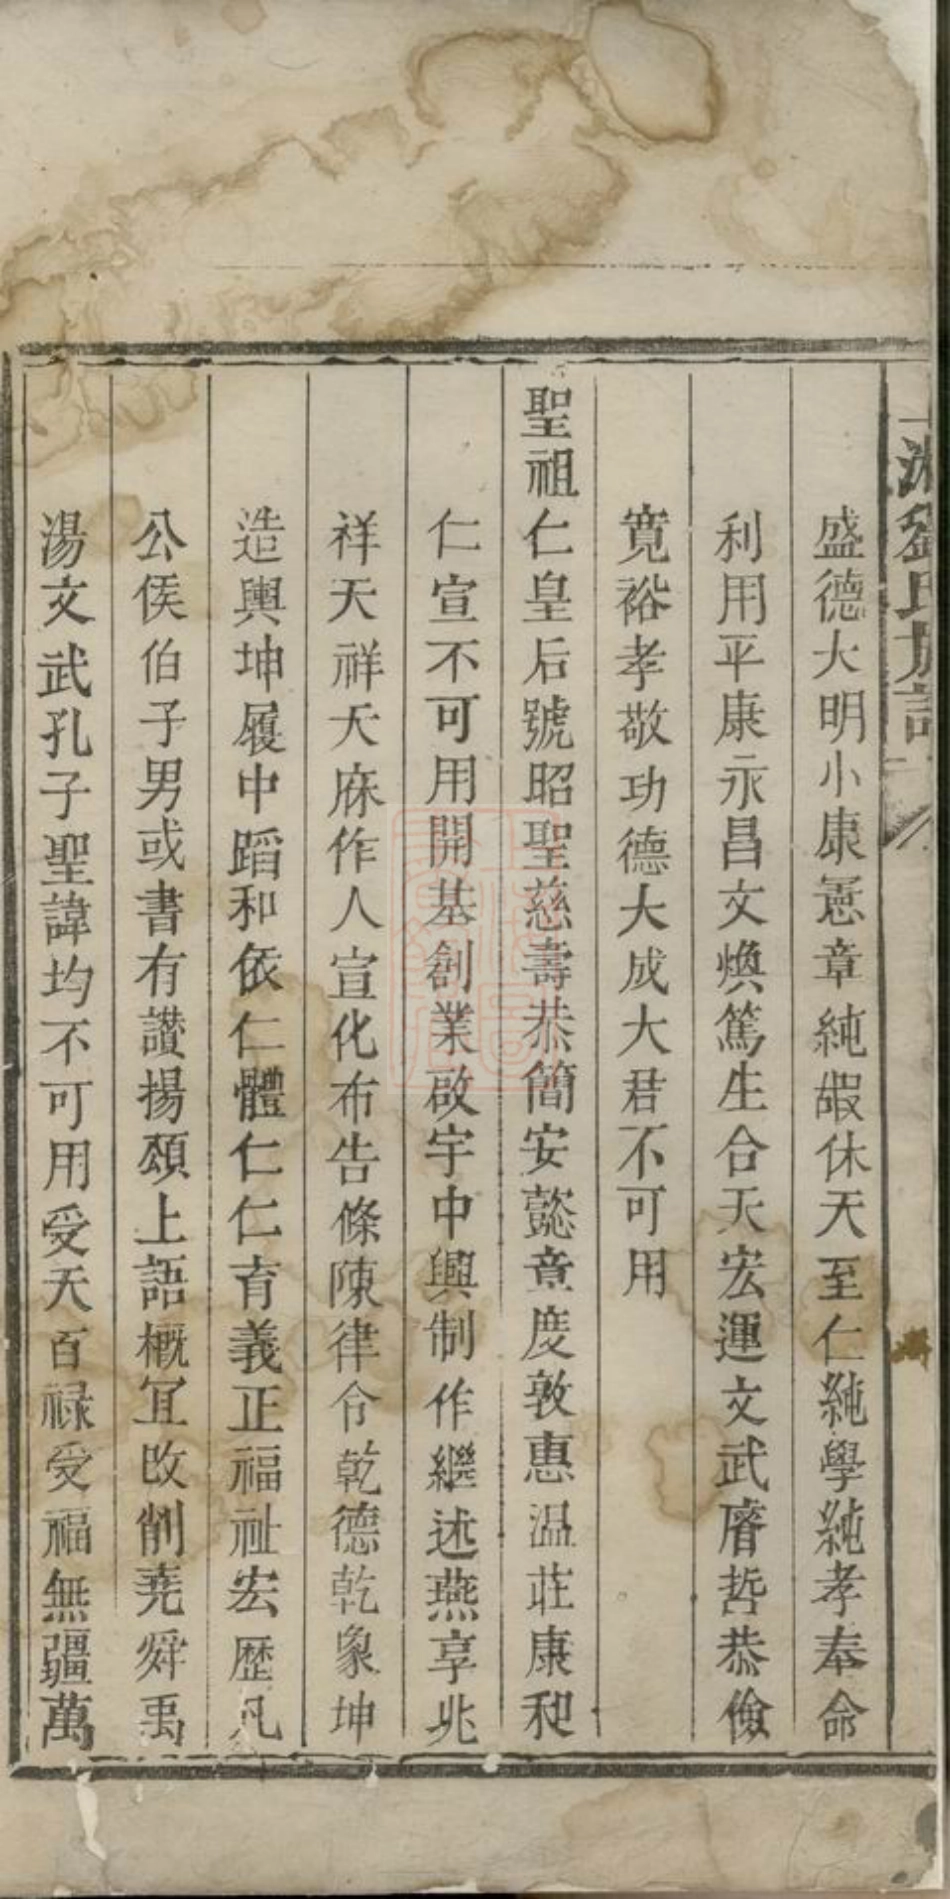 上湘劉氏族譜
盛德大明小康憲章純嘏休天至仁純學純孝奉命
利用平康永昌文煥篤生合天宏運文武睿哲恭儉
寬裕孝敬功德大成大君不可用
聖祖仁皇后號昭聖慈壽恭簡安懿章慶敦惠温莊康和
仁宣不可用開基創業啟宇中興制作繼述燕享兆
祥天祥天庥作人宣化布告條陳律令乾德乾象坤
造輿坤履中蹈和依仁體仁仁育義正福祉宏歷凡
公侯伯子男或書有讚揚頌上語概冝改削堯舜禹
湯文武孔子聖諱均不可用受天百祿受福無疆萬